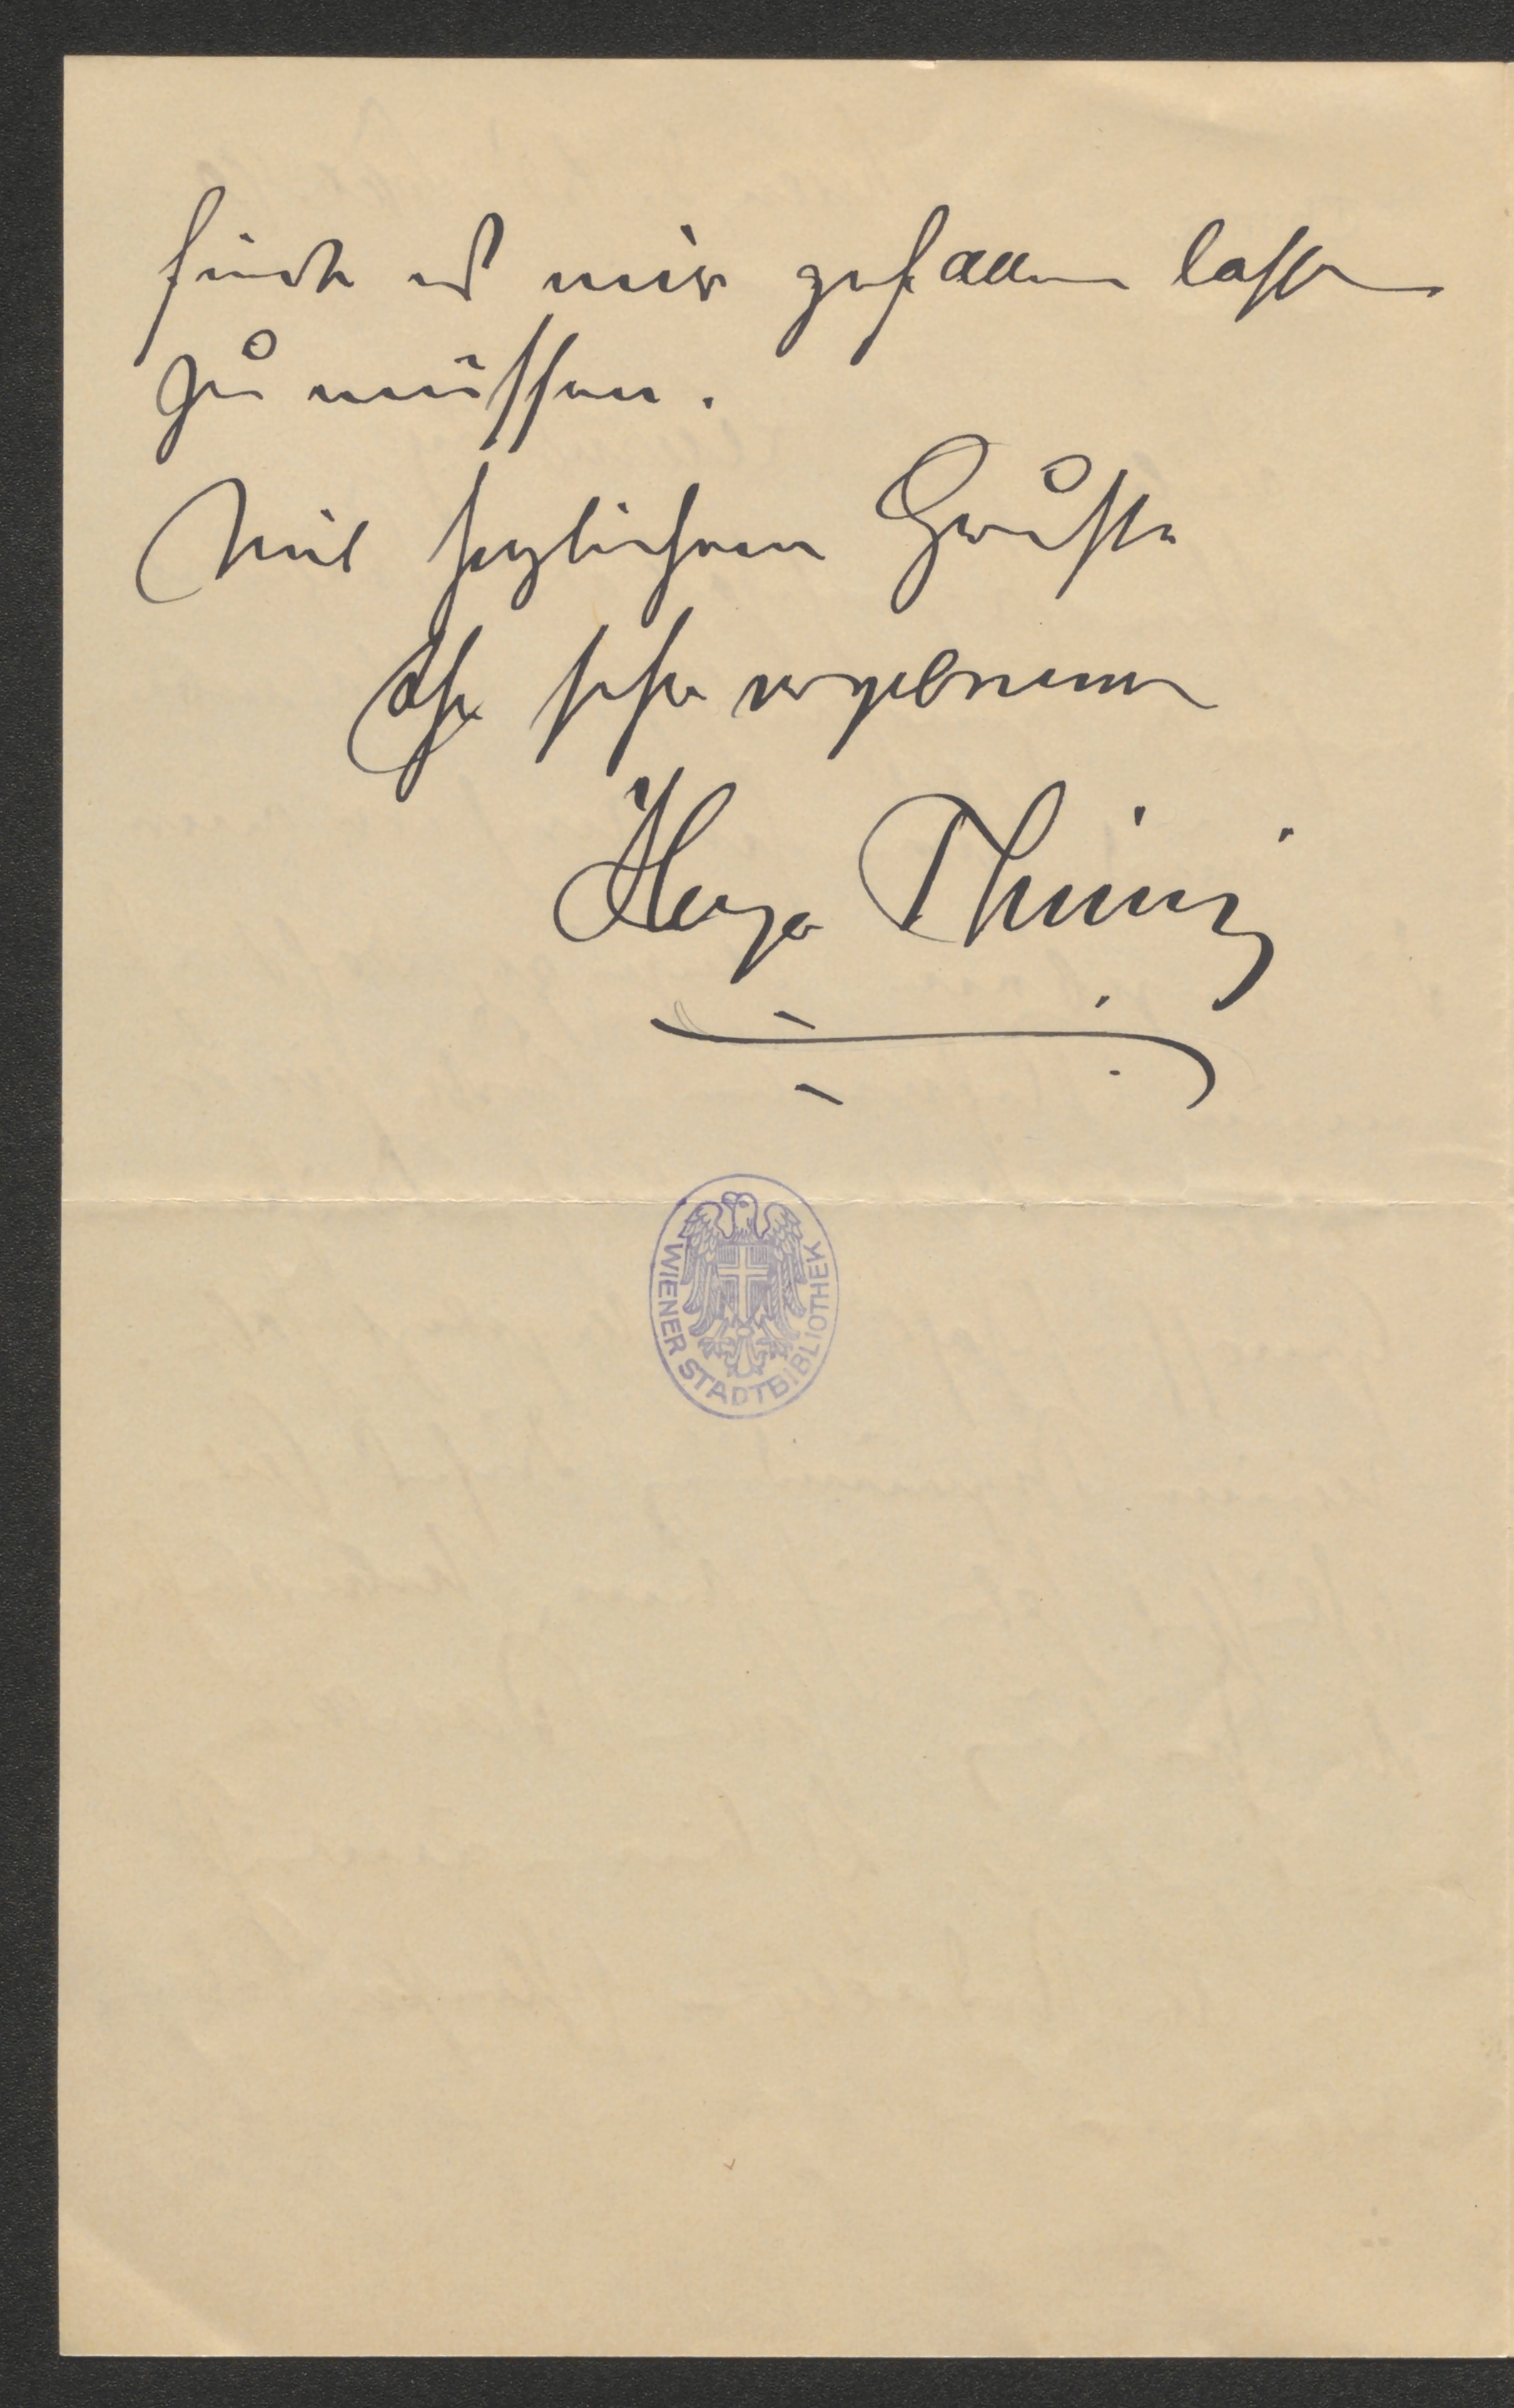 finde es mir gefallen lassen
zu müssen.
Mit herzlichem Gruße
Ihr sehr ergebener
Hugo Thimig
WIENER STADTBIBLIOTHEK